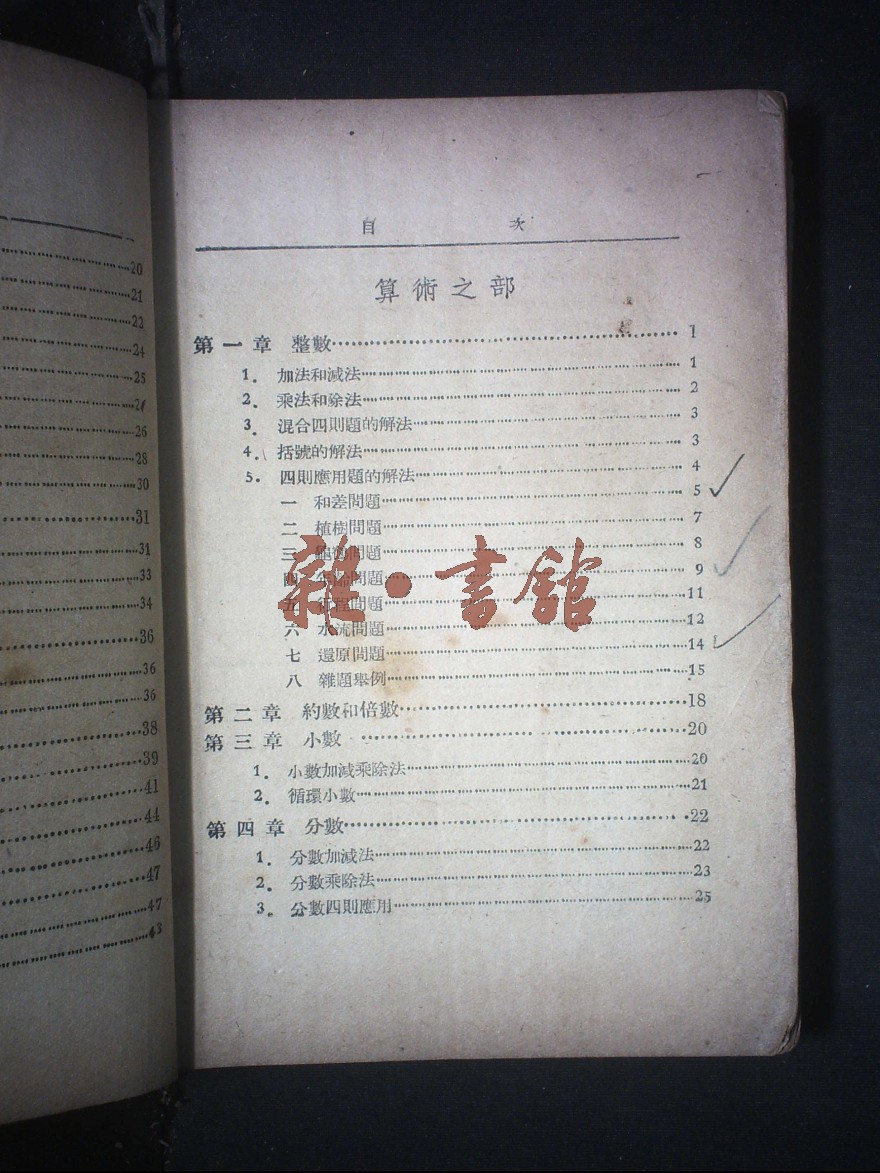 20
21
22
24
25
26
28
30
31
31
33
34
36
36
36
38
39
41
44
46
47
47
43
目 次
算術之部
第一章 整數 1
1. 加法和減法 1
2. 乘法和除法 2
3. 混合四則題的解法 3
4. 括號的解法 3
5. 四則應用題的解法 4
一 和差問題 5
二 植樹問題 7
三 問題 8
四 年齡問題 9
五 行程問題 11
六 水流問題 12
七 還原問題 14
八 雜題舉例 15
第二章 約數和倍數 18
第三章 小數 20
1. 小數加減乘除法 20
2. 循環小數 21
第四章 分數 22
1. 分數加減法 22
2. 分數乘除法 23
3. 分數四則應用 25
雜·書館